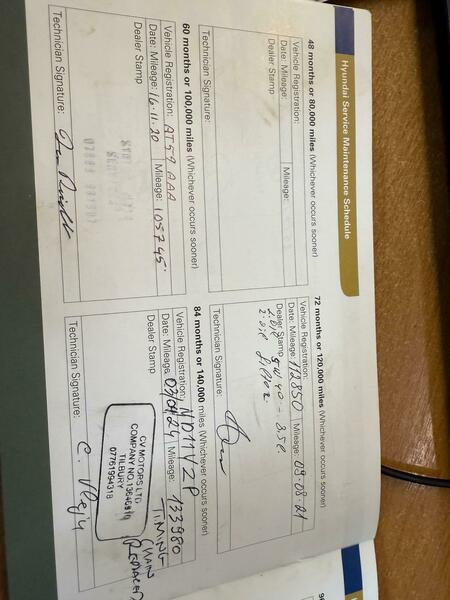 Hyundai Service Maintenance Schedule
48 months or 80,000 miles (Whichever occurs sooner)
Vehicle Registration:
Date: Mileage: Mileage:
Dealer Stamp
Technician Signature:
60 months or 100,000 miles (Whichever occurs sooner)
Vehicle Registration: AT59 AAA
Date: Mileage: 16.11.20 Mileage: 105745
Dealer Stamp
Technician Signature:
72 months or 120,000 miles (Whichever occurs sooner)
Vehicle Registration:
Date: Mileage: 112850 Mileage: 08.08.21
Dealer Stamp 5W40 - 8.5l
Technician Signature:
84 months or 140,000 miles (Whichever occurs sooner)
Vehicle Registration: ND11VZP
Date: Mileage: 03/04/24 Mileage: 133980
Dealer Stamp TIMING
CHAIN
CV MOTORS LTD
COMPANY NO.
TILBURY
07761994318
Technician Signature: